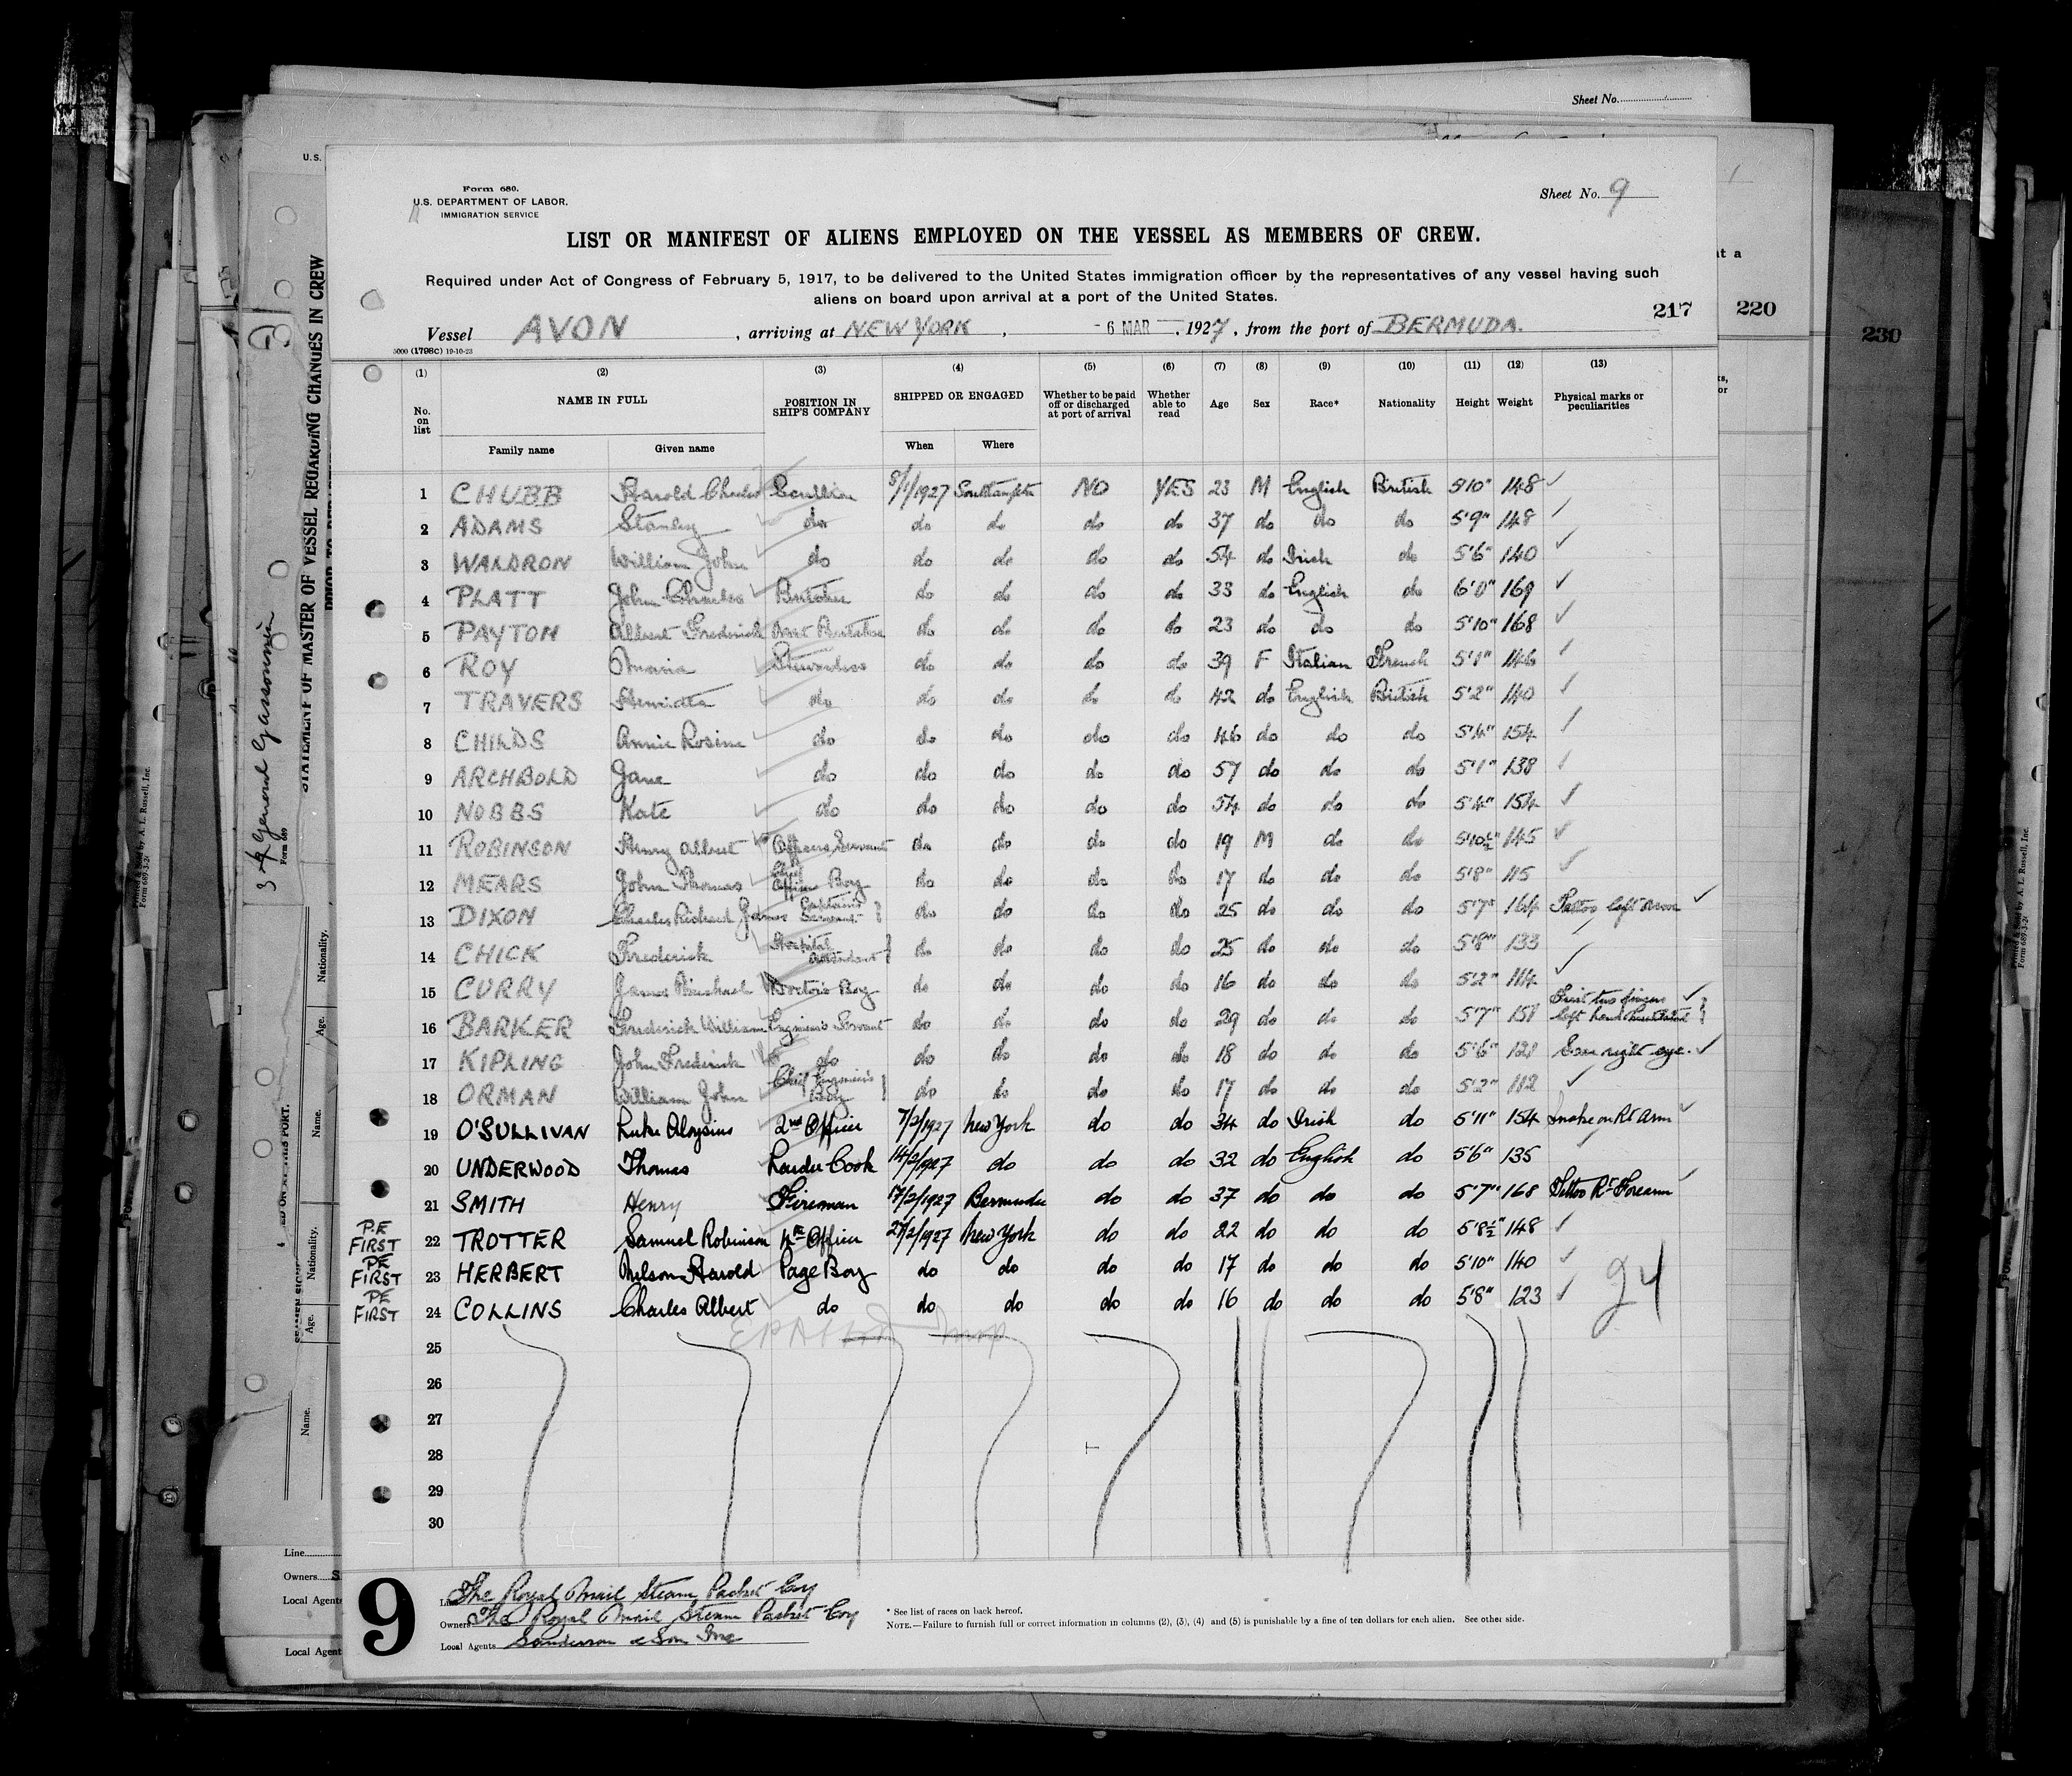 Sheet No.
U.S.
Form 680.
U.S. DEPARTMENT OF LABOR.
IMMIGRATION SERVICE
Sheet No. 9
LIST OR MANIFEST OF ALIENS EMPLOYED ON THE VESSEL AS MEMBERS OF CREW.
Required under Act of Congress of February 5, 1917, to be delivered to the United States immigration officer by the representatives of any vessel having such
aliens on board upon arrival at a port of the United States.
217
220
230
Vessel AVON, arriving at NEW YORK, - 6 MAR, 1927, from the port of BERMUDA.
5000 (1798C) 19-10-23
(1) (2) (3) (4) (5) (6) (7) (8) (9) (10) (11) (12) (13)
No. on list NAME IN FULL POSITION IN SHIP'S COMPANY SHIPPED OR ENGAGED Whether to be paid off or discharged at port of arrival Whether able to read Age Sex Race* Nationality Height Weight Physical marks or peculiarities
Family name Given name When Where
1 CHUBB Harold Charles Scullion 8/1/1927 Southampton NO YES 23 M English British 5'10" 148
2 ADAMS Stanley do do do do do 37 do do do 5'9" 148
3 WALDRON William John do do do do do 54 do Irish do 5'6" 140
4 PLATT John Charles Butcher do do do do 33 do English do 6'0" 169
5 PAYTON Albert Frederick Asst Butcher do do do do 23 do do do 5'10" 168
6 ROY Maria Stewardess do do do do 39 F Italian French 5'1" 146
7 TRAVERS Henrietta do do do do do 42 do English British 5'2" 140
8 CHILDS Annie Rosina do do do do do 46 do do do 5'4" 154
9 ARCHBOLD Jane do do do do do 57 do do do 5'1" 138
10 NOBBS Kate do do do do do 54 do do do 5'4" 154
11 ROBINSON Henry Albert Officers Servant do do do do 19 M do do 5'10½" 145
12 MEARS John Thomas Office Boy do do do do 17 do do do 5'8" 115
13 DIXON Charles Richard James Captains Servant do do do do 25 do do do 5'7" 164 Tattoo left arm
14 CHICK Frederick Hospital Attendant do do do do 25 do do do 5'8" 133
15 CURRY James Michael Doctor's Boy do do do do 16 do do do 5'2" 114
16 BARKER Frederick William Engineer's Servant do do do do 29 do do do 5'7" 151 First two fingers left hand
17 KIPLING John Frederick do do do do do 18 do do do 5'6" 121 Scar right eye.
18 ORMAN William John Chief Engineer's Boy do do do do 17 do do do 5'2" 112
19 O'SULLIVAN Luke Aloysius 2nd Officer 7/2/1927 New York do do 34 do Irish do 5'11" 154 Snake on Rt Arm
20 UNDERWOOD Thomas Larder Cook 14/2/1927 do do do 32 do English do 5'6" 135
21 SMITH Henry Fireman 17/2/1927 Bermuda do do 37 do do do 5'7" 168 Tattoo Rt Forearm
P.E FIRST 22 TROTTER Samuel Robinson 4th Officer 27/2/1927 New York do do 22 do do do 5'8½" 148
PE FIRST 23 HERBERT Nelson Harold Page Boy do do do do 17 do do do 5'10" 140
PE FIRST 24 COLLINS Charles Albert do do do do do 16 do do do 5'8" 123
24
25
26
27
28
29
30
9
Line The Royal Mail Steam Packet Coy
Owners The Royal Mail Steam Packet Coy
Local Agents Sanderson & Son Inc
* See list of races on back hereof.
NOTE.—Failure to furnish full or correct information in columns (2), (3), (4) and (5) is punishable by a fine of ten dollars for each alien. See other side.
STATEMENT OF MASTER OF VESSEL REGARDING CHANGES IN CREW
Form 689
Nationality.
Age.
Name.
Nationality.
Age.
Name.
Line
Owners
Local Agents
Local Agent
Printed & Sold by A. L. Russell, Inc.
Form 689-3-2